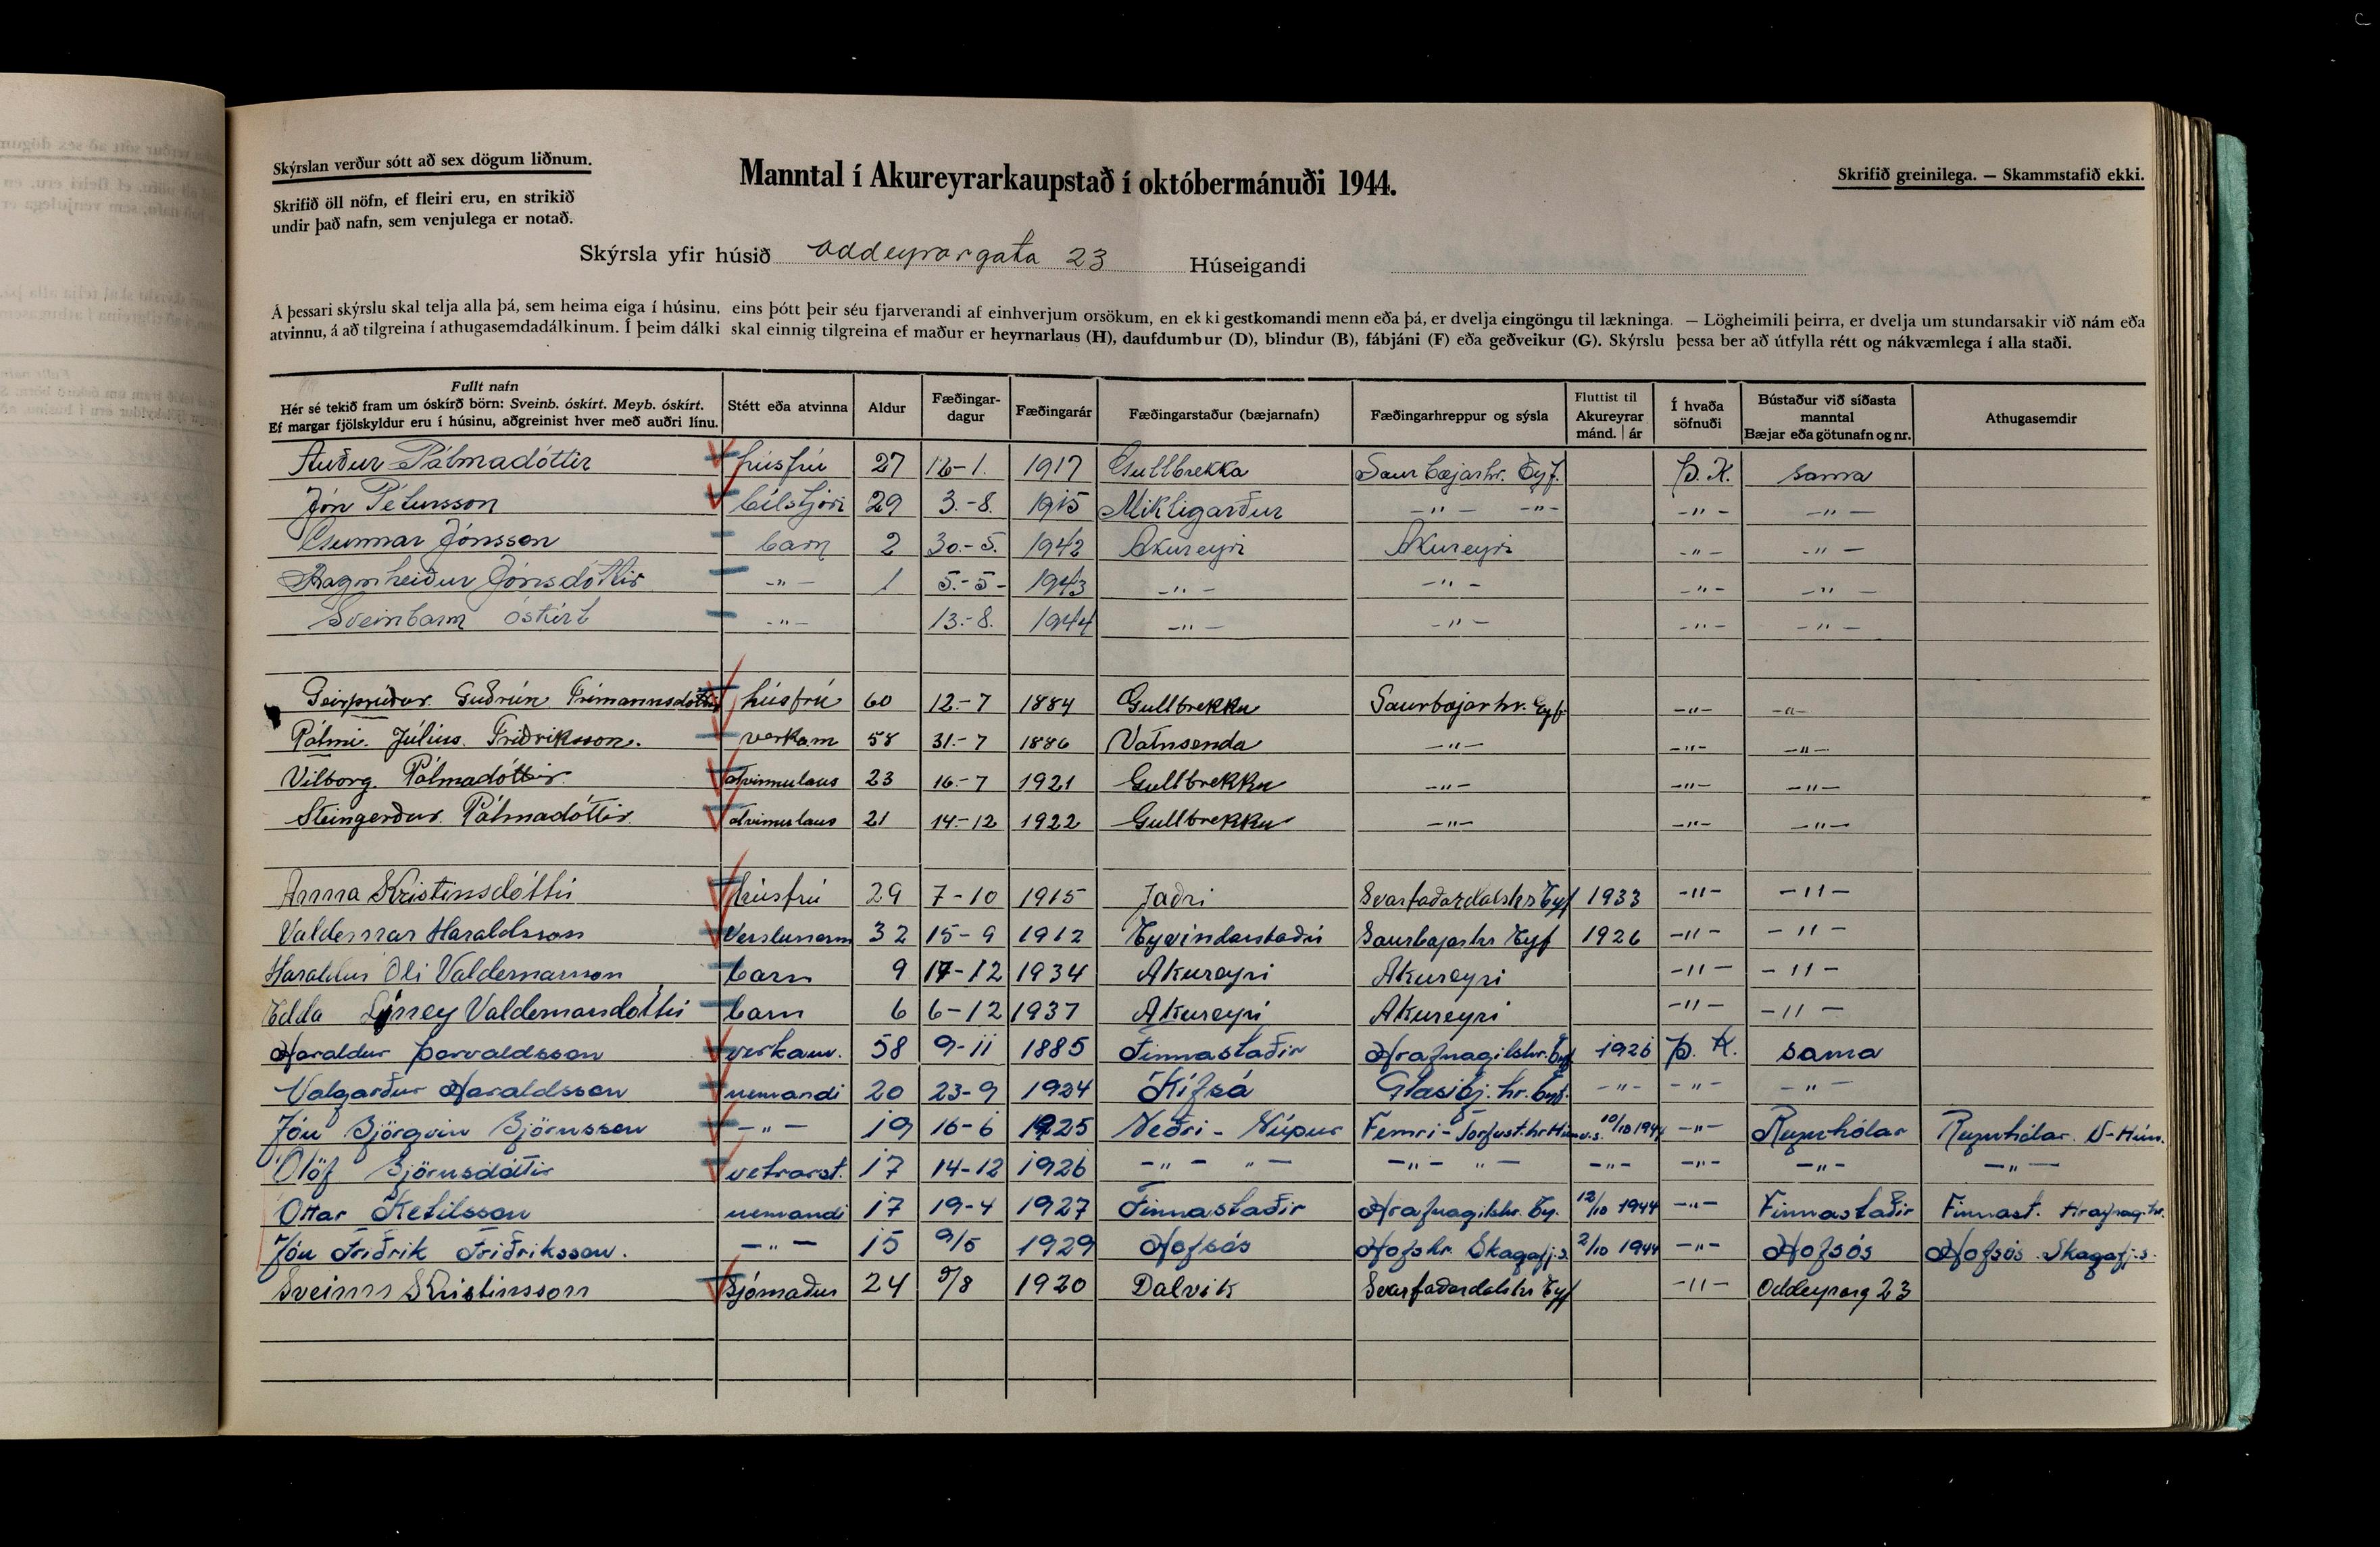 Skýrslan verður sótt að sex dögum liðnum.
Skrifið öll nöfn, ef fleiri eru, en strikið
undir það nafn, sem venjulega er notað.
Manntal í Akureyrarkaupstað í októbermánuði 1944.
Skrifið greinilega. — Skammstafið ekki.
Skýrsla yfir húsið Oddeyrargata 23 Húseigandi
Á þessari skýrslu skal telja alla þá, sem heima eiga í húsinu, eins þótt þeir séu fjarverandi af einhverjum orsökum, en ekki gestkomandi menn eða þá, er dvelja eingöngu til lækninga. — Lögheimili þeirra, er dvelja um stundarsakir við nám eða
atvinnu, á að tilgreina í athugasemdadálkinum. Í þeim dálki skal einnig tilgreina ef maður er heyrnarlaus (H), daufdumbur (D), blindur (B), fábjáni (F) eða geðveikur (G). Skýrslu þessa ber að útfylla rétt og nákvæmlega í alla staði.
Fullt nafn
Hér sé tekið fram um óskírð börn: Sveinb. óskírt. Meyb. óskírt.
Ef margar fjölskyldur eru í húsinu, aðgreinist hver með auðri línu.
Stétt eða atvinna
Aldur
Fæðingar-
dagur
Fæðingarár
Fæðingarstaður (bæjarnafn)
Fæðingarhreppur og sýsla
Fluttist til
Akureyrar
mánd. | ár
Í hvaða
söfnuði
Bústaður við síðasta
manntal
Bæjar eða götunafn og nr.
Athugasemdir
Auður Pálmadóttir húsfrú 27 12-1. 1917 Gullbrekka Saurbæjarhr. Eyf. Þ.K. sama
Jón Pétursson bílstjóri 29 3.-8. 1915 Mikligarður -"- -"- -"- -"-
Gunnar Jónsson barn 2 30.-5. 1942 Akureyri Akureyri -"- -"-
Ragnheiður Jónsdóttir -"- 1 5.-5- 1943 -"- -"- -"- -"-
Sveinbarn óskírt -"- 13.-8. 1944 -"- -"- -"- -"-
Geirþrúður. Guðrún Frímannsdóttir húsfrú 60 12.-7 1884 Gullbrekku Saurbæjarhr. Eyf. -"- -"-
Pálmi. Júlíus. Friðriksson. verkam 58 31.-7 1886 Vatnsenda -"- -"- -"-
Vilborg. Pálmadóttir. atvinnulaus 23 16.-7 1921 Gullbrekku -"- -"- -"-
Steingerður. Pálmadóttir. atvinnulaus 21 14.-12 1922 Gullbrekku -"- -"- -"-
Anna Kristinsdóttir húsfrú 29 7-10 1915 Jaðri Svarfaðardalshr Eyf 1933 -"- -"-
Valdemar Haraldsson Verslunarm 32 15-9 1912 Eyvindarstaðir Saurbæjarhr Eyf 1926 -"- -"-
Haraldur Óli Valdemarsson barn 9 17-12 1934 Akureyri Akureyri -"- -"-
Edda Valdemarsdóttir barn 6 6-12 1937 Akureyri Akureyri -"- -"-
Haraldur Þorvaldsson verkam. 58 9-11 1885 Finnastaðir Hrafnagilshr. Eyf 1926 Þ. K. sama
Valgarður Haraldsson nemandi 20 23-9 1924 Kífsá Glæsibj. hr. Eyf. -"- -"- -"-
Jón Björgvin Björnsson -"- 19 16-6 1925 Neðri-Núpur Fremri-Torfust.hr Húnv.s. 10/10 1944 -"- Reynhólar Reynhólar. V-Hún.
Ólöf Björnsdóttir vetrarst. 17 14-12 1926 -"- "- -"- "- -"- -"- -"- -"-
Ottar Ketilsson nemandi 17 19-4 1927 Finnastaðir Hrafnagilshr. Ey. 12/10 1944 -"- Finnastaðir Finnast. Hrafnag.hr.
Jón Friðrik Friðriksson. -"- 15 9/5 1929 Hofsós Hofshr. Skagafj.s. 2/10 1944 -"- Hofsós Hofsós. Skagafj.s.
Sveinn Kristinsson Sjómaður 24 9/8 1920 Dalvík Svarfaðardalshr Eyf -"- Oddeyrarg 23